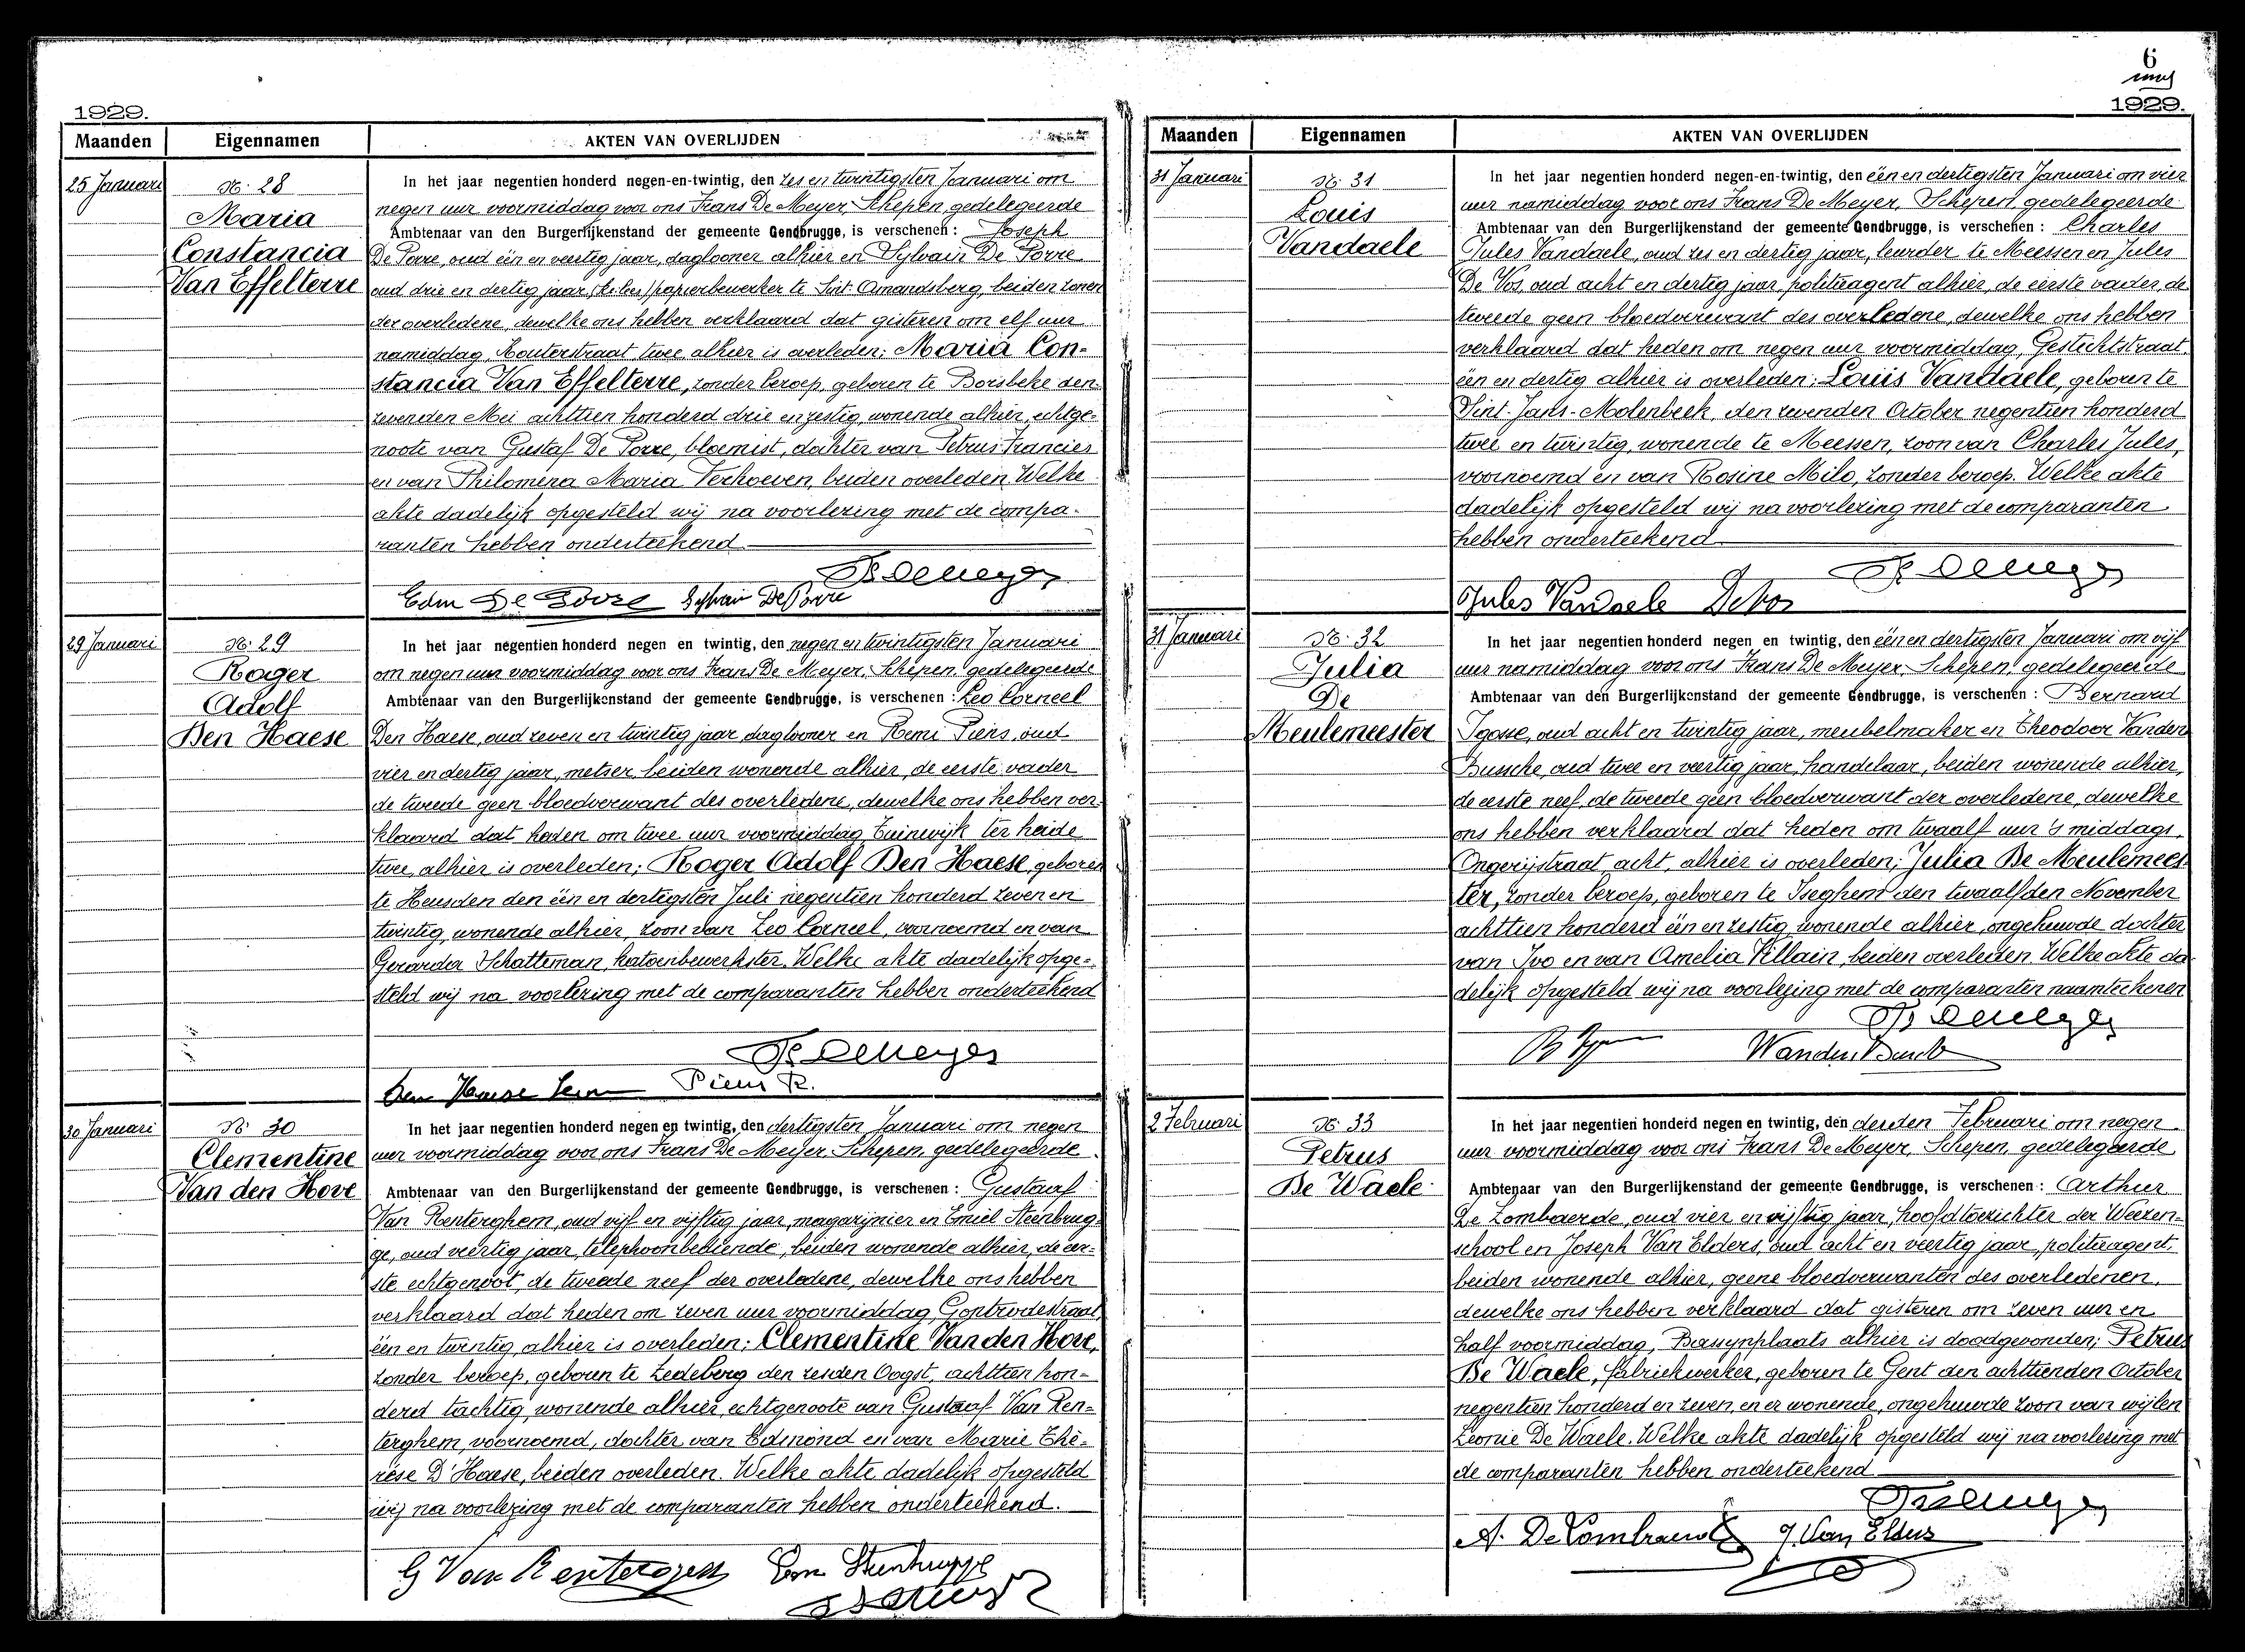 6
1929.
Maanden Eigennamen AKTEN VAN OVERLIJDEN
25 Januari
N: 28
Maria
Constancia
Van Effelterre
In het jaar negentien honderd negen-en-twintig, den zes en twintigsten Januari om
negen uur voormiddag voor ons Frans De Meyer, Schepen, gedelegeerde
Ambtenaar van den Burgerlijkenstand der gemeente Gendbrugge, is verschenen: Joseph
De Porre, oud één en veertig jaar, daglooner alhier en Sylvain De Porre
oud drie en dertig jaar, papierbewerker te Sint Amandsberg, beiden zonen
der overledene, dewelke ons hebben verklaard dat gisteren om elf uur
namiddag, Kouterstraat twee, alhier is overleden; Maria Con-
stancia Van Effelterre, zonder beroep, geboren te Borsbeke den
zevenden Mei achttien honderd drie en zestig, wonende alhier, echtge-
noote van Gustaf De Porre, bloemist, dochter van Petrus Francies
en van Philomena Maria Verhoeven, beiden overleden. Welke
akte dadelijk opgesteld wij na voorlezing met de compa-
ranten hebben onderteekend
Edm De Porre Sylvain De Porre
29 Januari
N: 29
Roger
Adolf
Den Haese
In het jaar negentien honderd negen en twintig, den negen en twintigsten Januari
om negen uur voormiddag voor ons Frans De Meyer, Schepen, gedelegeerde
Ambtenaar van den Burgerlijkenstand der gemeente Gendbrugge, is verschenen: Leo Corneel
Den Haese, oud zeven en twintig jaar daglooner en Remi Piens, oud
vier en dertig jaar, metser beiden wonende alhier, de eerste vader
de tweede geen bloedverwant des overledene, dewelke ons hebben ver-
klaard dat heden om twee uur voormiddag Tuinwijk ter heide
twee, alhier is overleden; Roger Adolf Den Haese, geboren
te Heusden den één en dertigsten Juli negentien honderd zeven en
twintig, wonende alhier, zoon van Leo Corneel, voornoemd en van
Gerarda Schatteman, katoenbewerkster. Welke akte dadelijk opge-
steld wij na voorlezing met de comparanten hebben onderteekend
Den Haese Leon Piens R.
30 Januari
N: 30
Clementine
Van den Hove
In het jaar negentien honderd negen en twintig, den dertigsten Januari om negen
uur voormiddag voor ons Frans De Meyer, Schepen, gedelegeerde
Ambtenaar van den Burgerlijkenstand der gemeente Gendbrugge, is verschenen: Gustaaf
Van Renterghem, oud vijf en vijftig jaar, magazijnier en Emiel Steenbrug-
ge, oud veertig jaar, telephoonbediende, beiden wonende alhier, de eer-
ste echtgenoot, de tweede neef der overledene, dewelke ons hebben
verklaard dat heden om zeven uur voormiddag, Gontrodestraat,
één en twintig, alhier is overleden; Clementine Van den Hove,
zonder beroep, geboren te Ledeberg den zesden Oogst, achttien hon-
derd tachtig, wonende alhier, echtgenoote van Gustaaf Van Ren-
terghem, voornoemd, dochter van Edmond en van Marie Thé-
rèse D'Haese, beiden overleden. Welke akte dadelijk opgesteld
wij na voorlezing met de comparanten hebben onderteekend.
G Van Renterghem Em Steenbrugge
1929.
Maanden Eigennamen AKTEN VAN OVERLIJDEN
31 Januari
N: 31
Louis
Vandaele
In het jaar negentien honderd negen-en-twintig, den één en dertigsten Januari om vier
uur namiddag voor ons Frans De Meyer, Schepen, gedelegeerde
Ambtenaar van den Burgerlijkenstand der gemeente Gendbrugge, is verschenen: Charles
Jules Vandaele, oud zes en dertig jaar, leurder te Meessen en Jules
De Vos, oud acht en dertig jaar, politieagent alhier, de eerste vader, de
tweede geen bloedverwant des overledene, dewelke ons hebben
verklaard dat heden om negen uur voormiddag, Gestichtstraat,
één en dertig alhier is overleden; Louis Vandaele, geboren te
Sint-Jans-Molenbeek, den zevenden October negentien honderd
twee en twintig, wonende te Meessen, zoon van Charles Jules,
voornoemd en van Rosine Milo, zonder beroep. Welke akte
dadelijk opgesteld wij na voorlezing met de comparanten
hebben onderteekend
Jules Vandaele Devos
31 Januari
N: 32
Julia
De
Meulemeester
In het jaar negentien honderd negen en twintig, den één en dertigsten Januari om vijf
uur namiddag voor ons Frans De Meyer, Schepen, gedelegeerde
Ambtenaar van den Burgerlijkenstand der gemeente Gendbrugge, is verschenen: Bernard
Igosse, oud acht en twintig jaar, meubelmaker en Theodoor Vanden
Bussche, oud twee en veertig jaar, handelaar, beiden wonende alhier,
de eerste neef, de tweede geen bloedverwant der overledene, dewelke
ons hebben verklaard dat heden om twaalf uur 's middags,
Ongerijstraat acht, alhier is overleden; Julia De Meulemees-
ter, zonder beroep, geboren te Iseghem den twaalfden November
achttien honderd één en zestig, wonende alhier, ongehuwde dochter
van Ivo en van Amelia Villain, beiden overleden. Welke akte da-
delijk opgesteld wij na voorlezing met de comparanten naamteekenen
2 Februari
N: 33
Petrus
De Waele
In het jaar negentien honderd negen en twintig, den derden Februari om negen
uur voormiddag voor ons Frans De Meyer, Schepen, gedelegeerde
Ambtenaar van den Burgerlijkenstand der gemeente Gendbrugge, is verschenen: Arthur
De Lombaerde, oud vier en vijftig jaar, hoofdtoezichter der Weezen-
school en Joseph Van Elders, oud acht en veertig jaar, politieagent,
beiden wonende alhier, geene bloedverwanten des overledenen,
dewelke ons hebben verklaard dat gisteren om zeven uur en
half voormiddag, Bassynplaats alhier is doodgevonden; Petrus
De Waele, fabriekwerker, geboren te Gent den achttienden October
negentien honderd en zeven, en er wonende, ongehuwde zoon van wijlen
Leonie De Waele. Welke akte dadelijk opgesteld wij na voorlezing met
de comparanten hebben onderteekend
A. De Lombaerde J. Van Elders